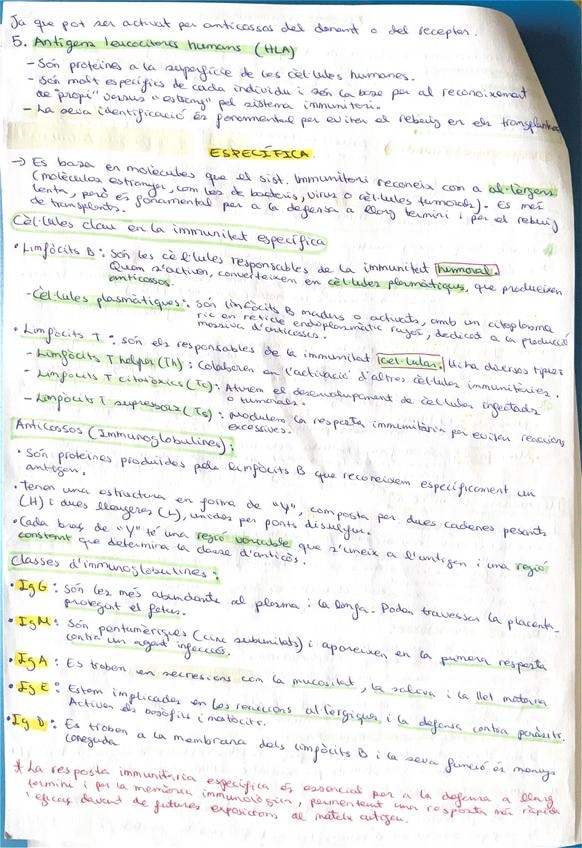 Ja que pot ser activat per anticossos del donant o del receptor.
5. Antigens leucocitaris humans (HLA)
- Són proteines a la superfície de les cèl·lules humanes.
- Són molt específics de cada individu i són la base per al reconeixement
de "propi" versus "estrany" pel sistema immunitari.
- La seva identificació és fonamental per evitar el rebuig en els transplantaments
ESPECÍFICA
→ Es basa en molècules que el sist. Immunitari reconeix com a al·lèrgens
(molècules estranyes, com les de bacteris, virus o cèl·lules tumorals). Es més
lenta, però és fonamental per a la defensa a llarg termini i per el rebuig
de transplants.
Cèl·lules clau en la immunitat específica
• Limfòcits B: són les cèl·lules responsables de la immunitat humoral.
Quan s'activen, converteixen en cèl·lules plasmàtiques, que produeixen
anticossos.
- Cèl·lules plasmàtiques: són limfòcits B madurs o activats, amb un citoplasma
ric en reticle endoplasmàtic rugós, dedicat a la producció
massiva d'anticossos.
• Limfòcits T: són els responsables de la immunitat cel·lular. Hi ha diversos tipus
- Limfòcits T helper (Th): Col·laboren en l'activació d'altres cèl·lules immunitàries.
- Limfòcits T citotòxics (Tc): Aturem el desenvolupament de cèl·lules infectades
o tumorals.
- Limfòcits T supressors (Ts): modulem la resposta immunitària per evitar reaccions
excessives.
Anticossos (Immunoglobulines):
• Són proteïnes produïdes pels limfòcits B que reconeixem específicament un
antigen.
• Tenen una estructura en forma de "Y", composta per dues cadenes pesants
(H) i dues lleugeres (L), unides per ponts disulfur.
• Cada braç de "Y" té una regió variable que s'uneix a l'antigen i una regió
constant que determina la classe d'anticòs.
Classes d'immunoglobulines:
• IgG: Són les més abundants al plasma i la limfa. Poden travessar la placenta
protegint el fetus.
• IgM: Són pentamèriques (cinc subunitats) i apareixen en la primera resposta
contra un agent infecciós.
• IgA: Es troben en secresions com la mucositat, la saliva i la llet materna
• IgE: Estem implicades en les reaccions al·lèrgiques i la defensa contra paràsits.
Activen els basòfils i mastòcits.
• IgD: Es troben a la membrana dels limfòcits B i la seva funció és menys
coneguda
* La resposta immunitària específica és essencial per a la defensa a llarg
termini i per la memòria immunològica, permetent una resposta més ràpida
i eficaç davant de futures exposicions al mateix antigen.